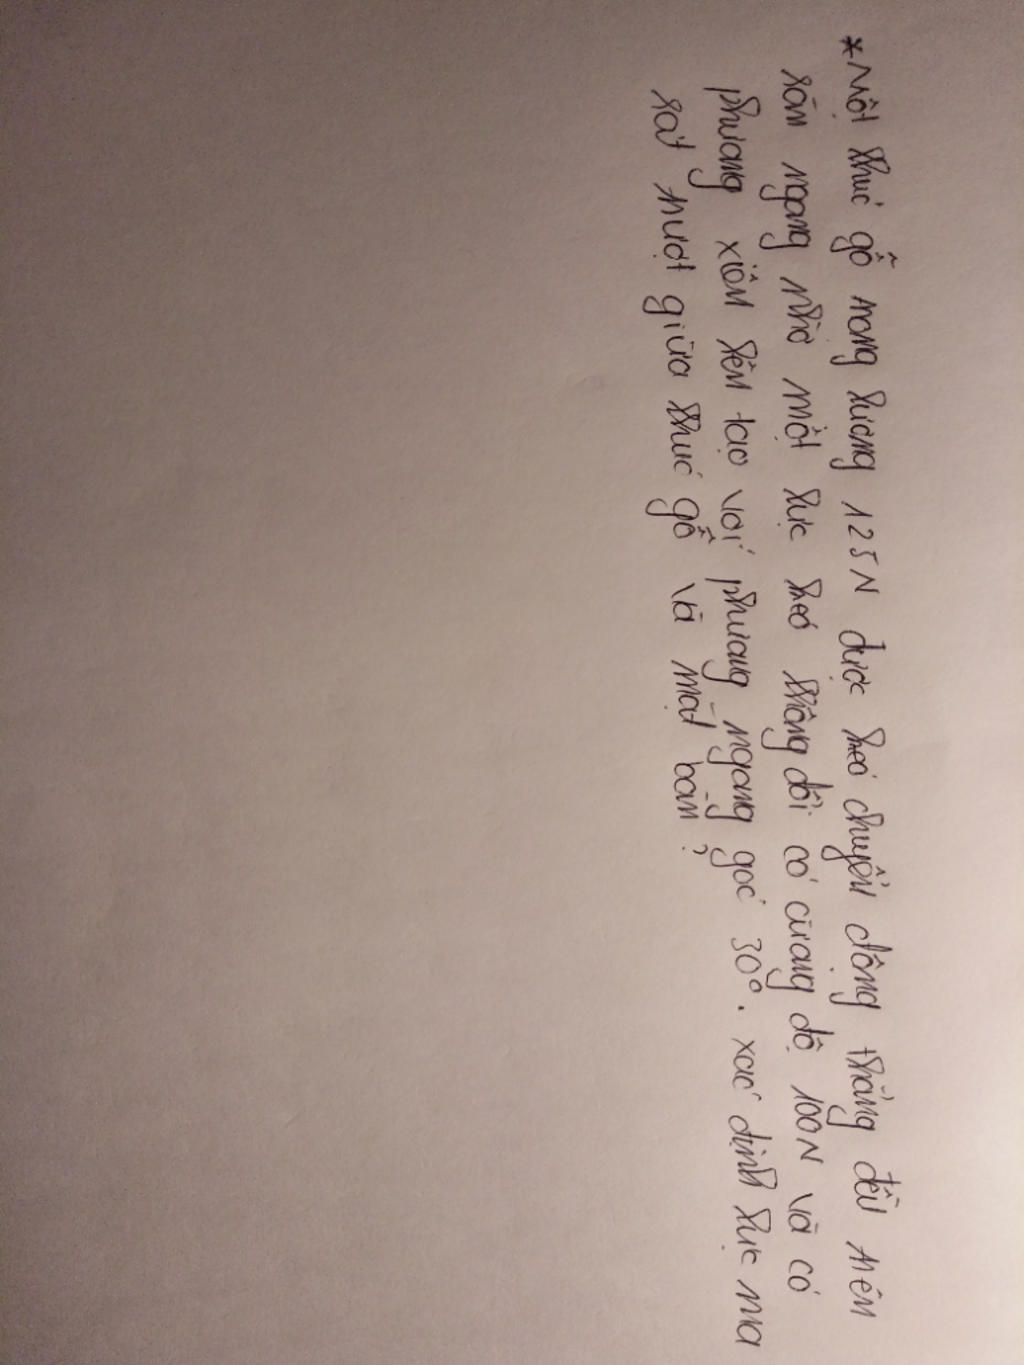 *Một khúc gỗ trong lượng 125N được kéo chuyển động thẳng đều trên
sàn ngang nhờ một lực kéo không đổi có cường độ 100N và có
phương xiên lên tạo với phương ngang góc 30°. xác định lực ma
sát trượt giữa khúc gỗ và mặt bàn?